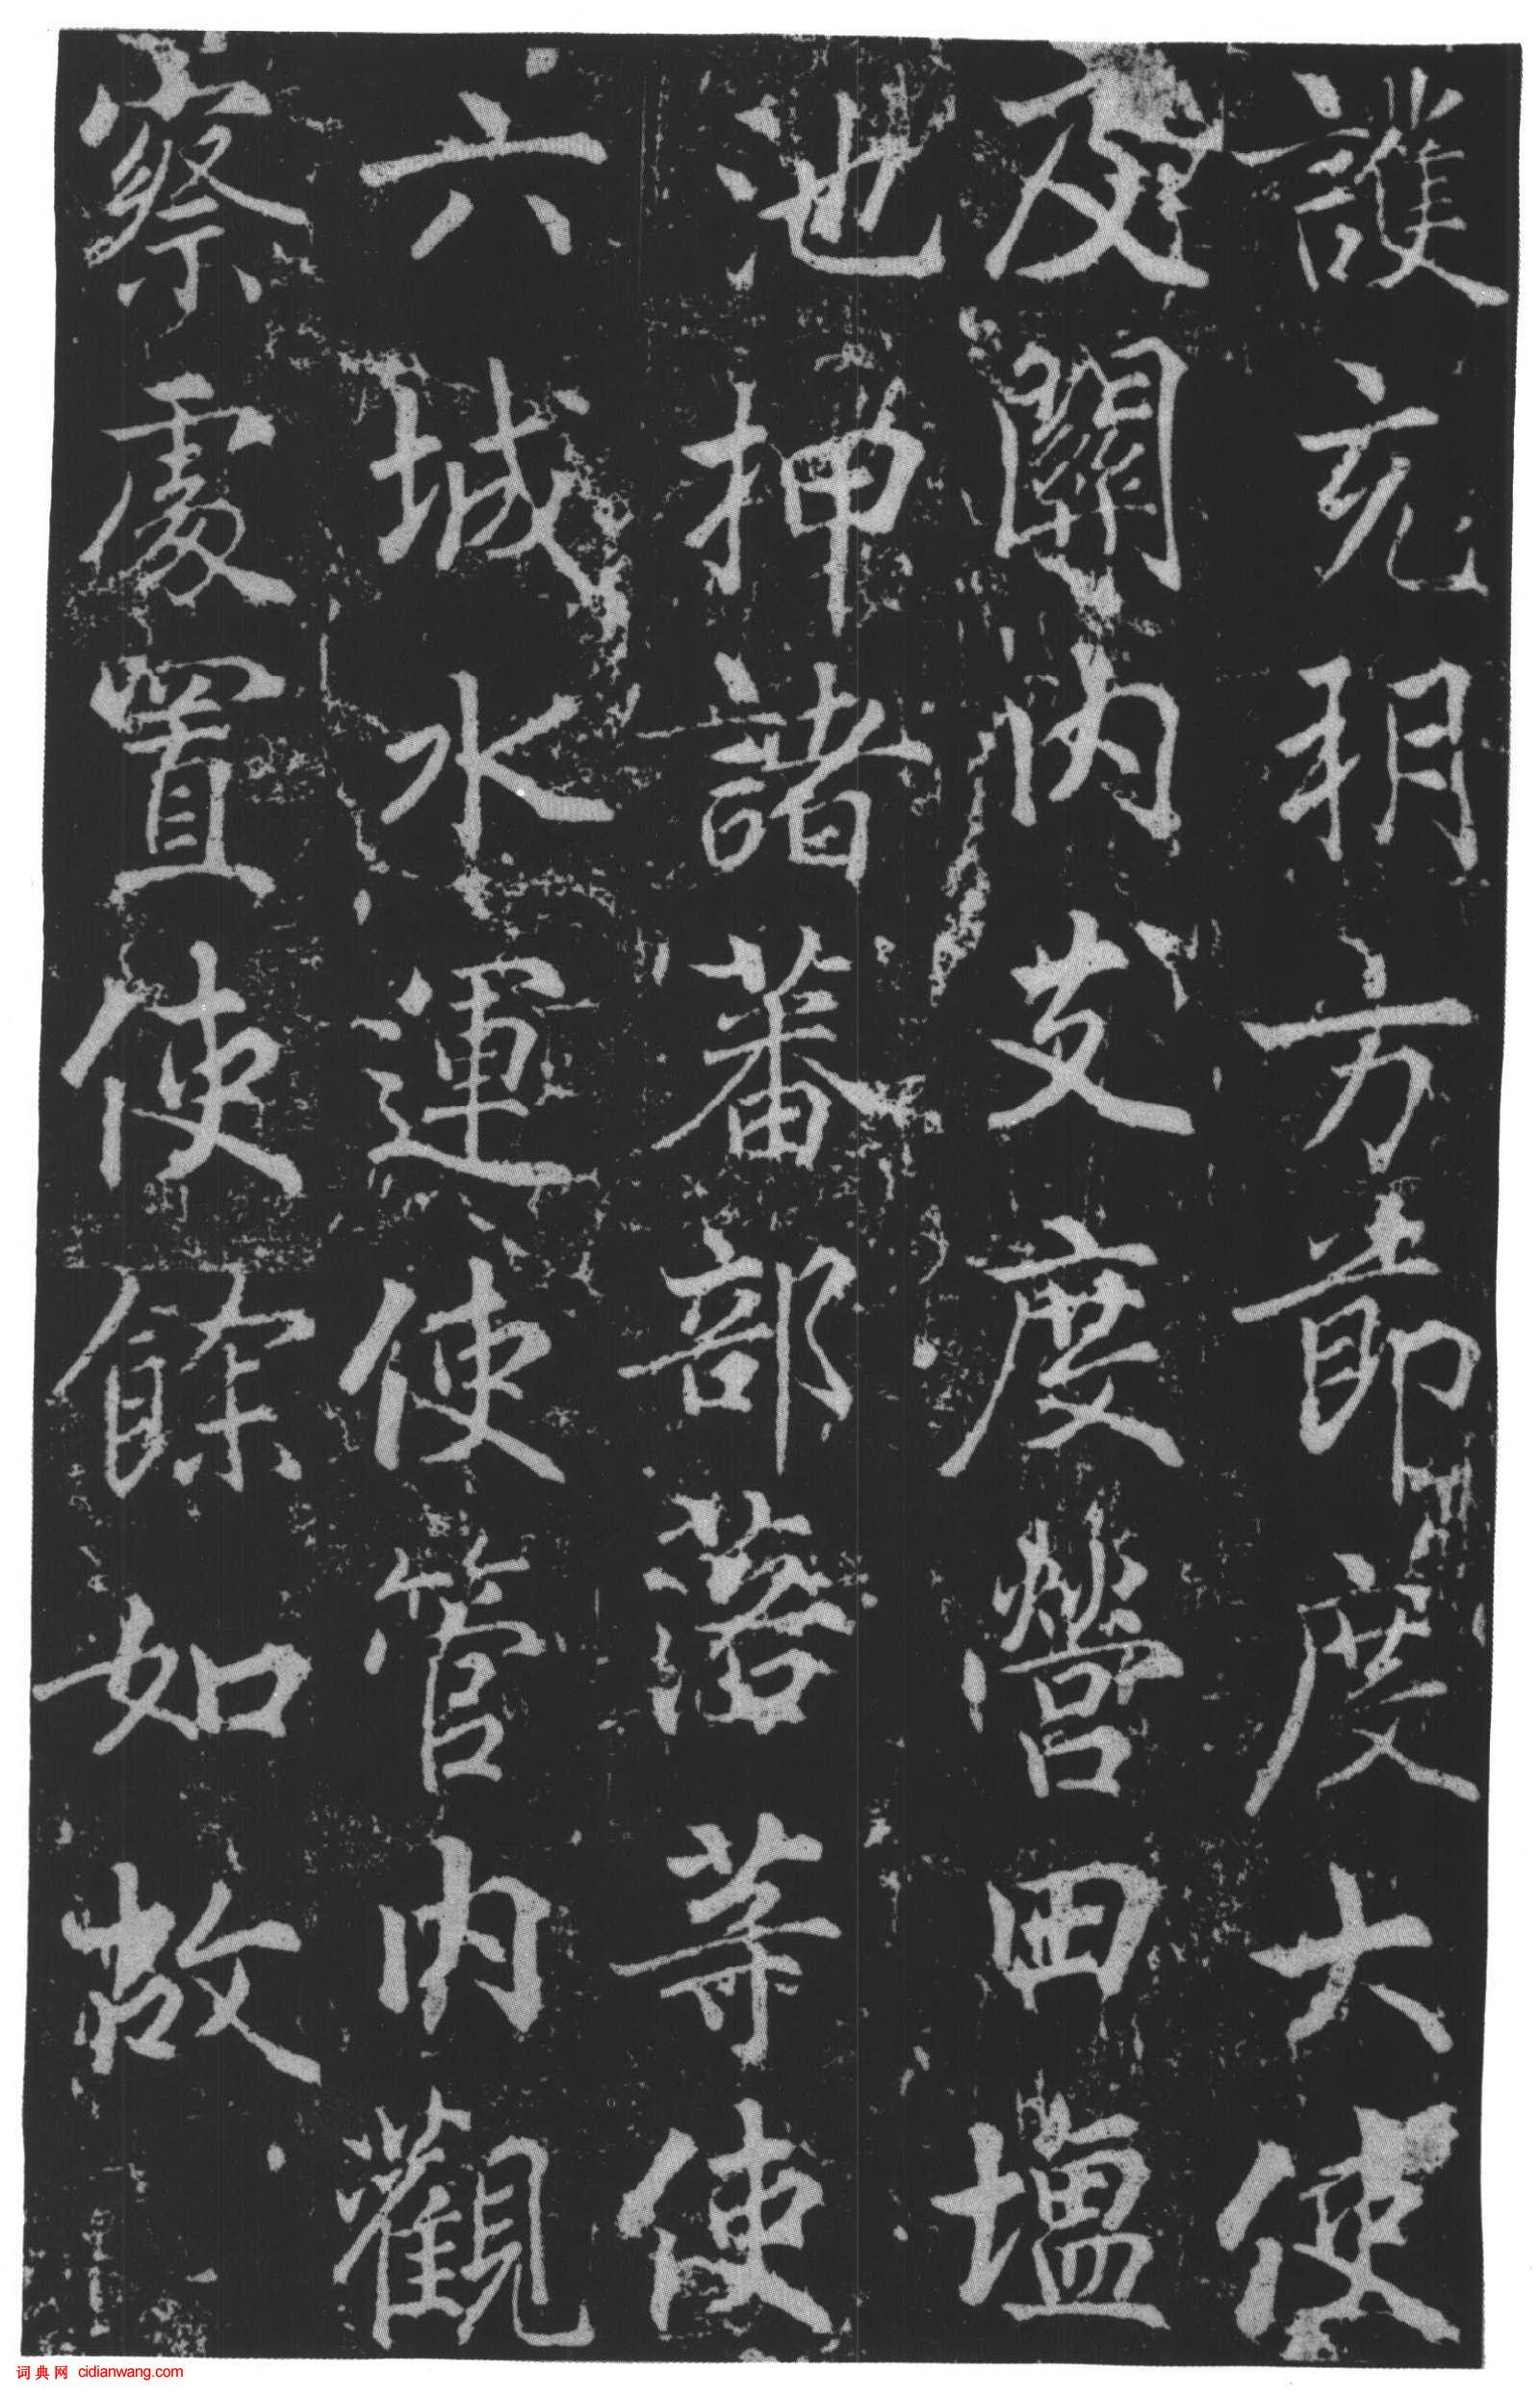 護充朔方節度大使
及關内支度營田塩
池押諸蕃部落等使
六城水運使管内觀
察處置使餘如故
词典网 cidianwang.com